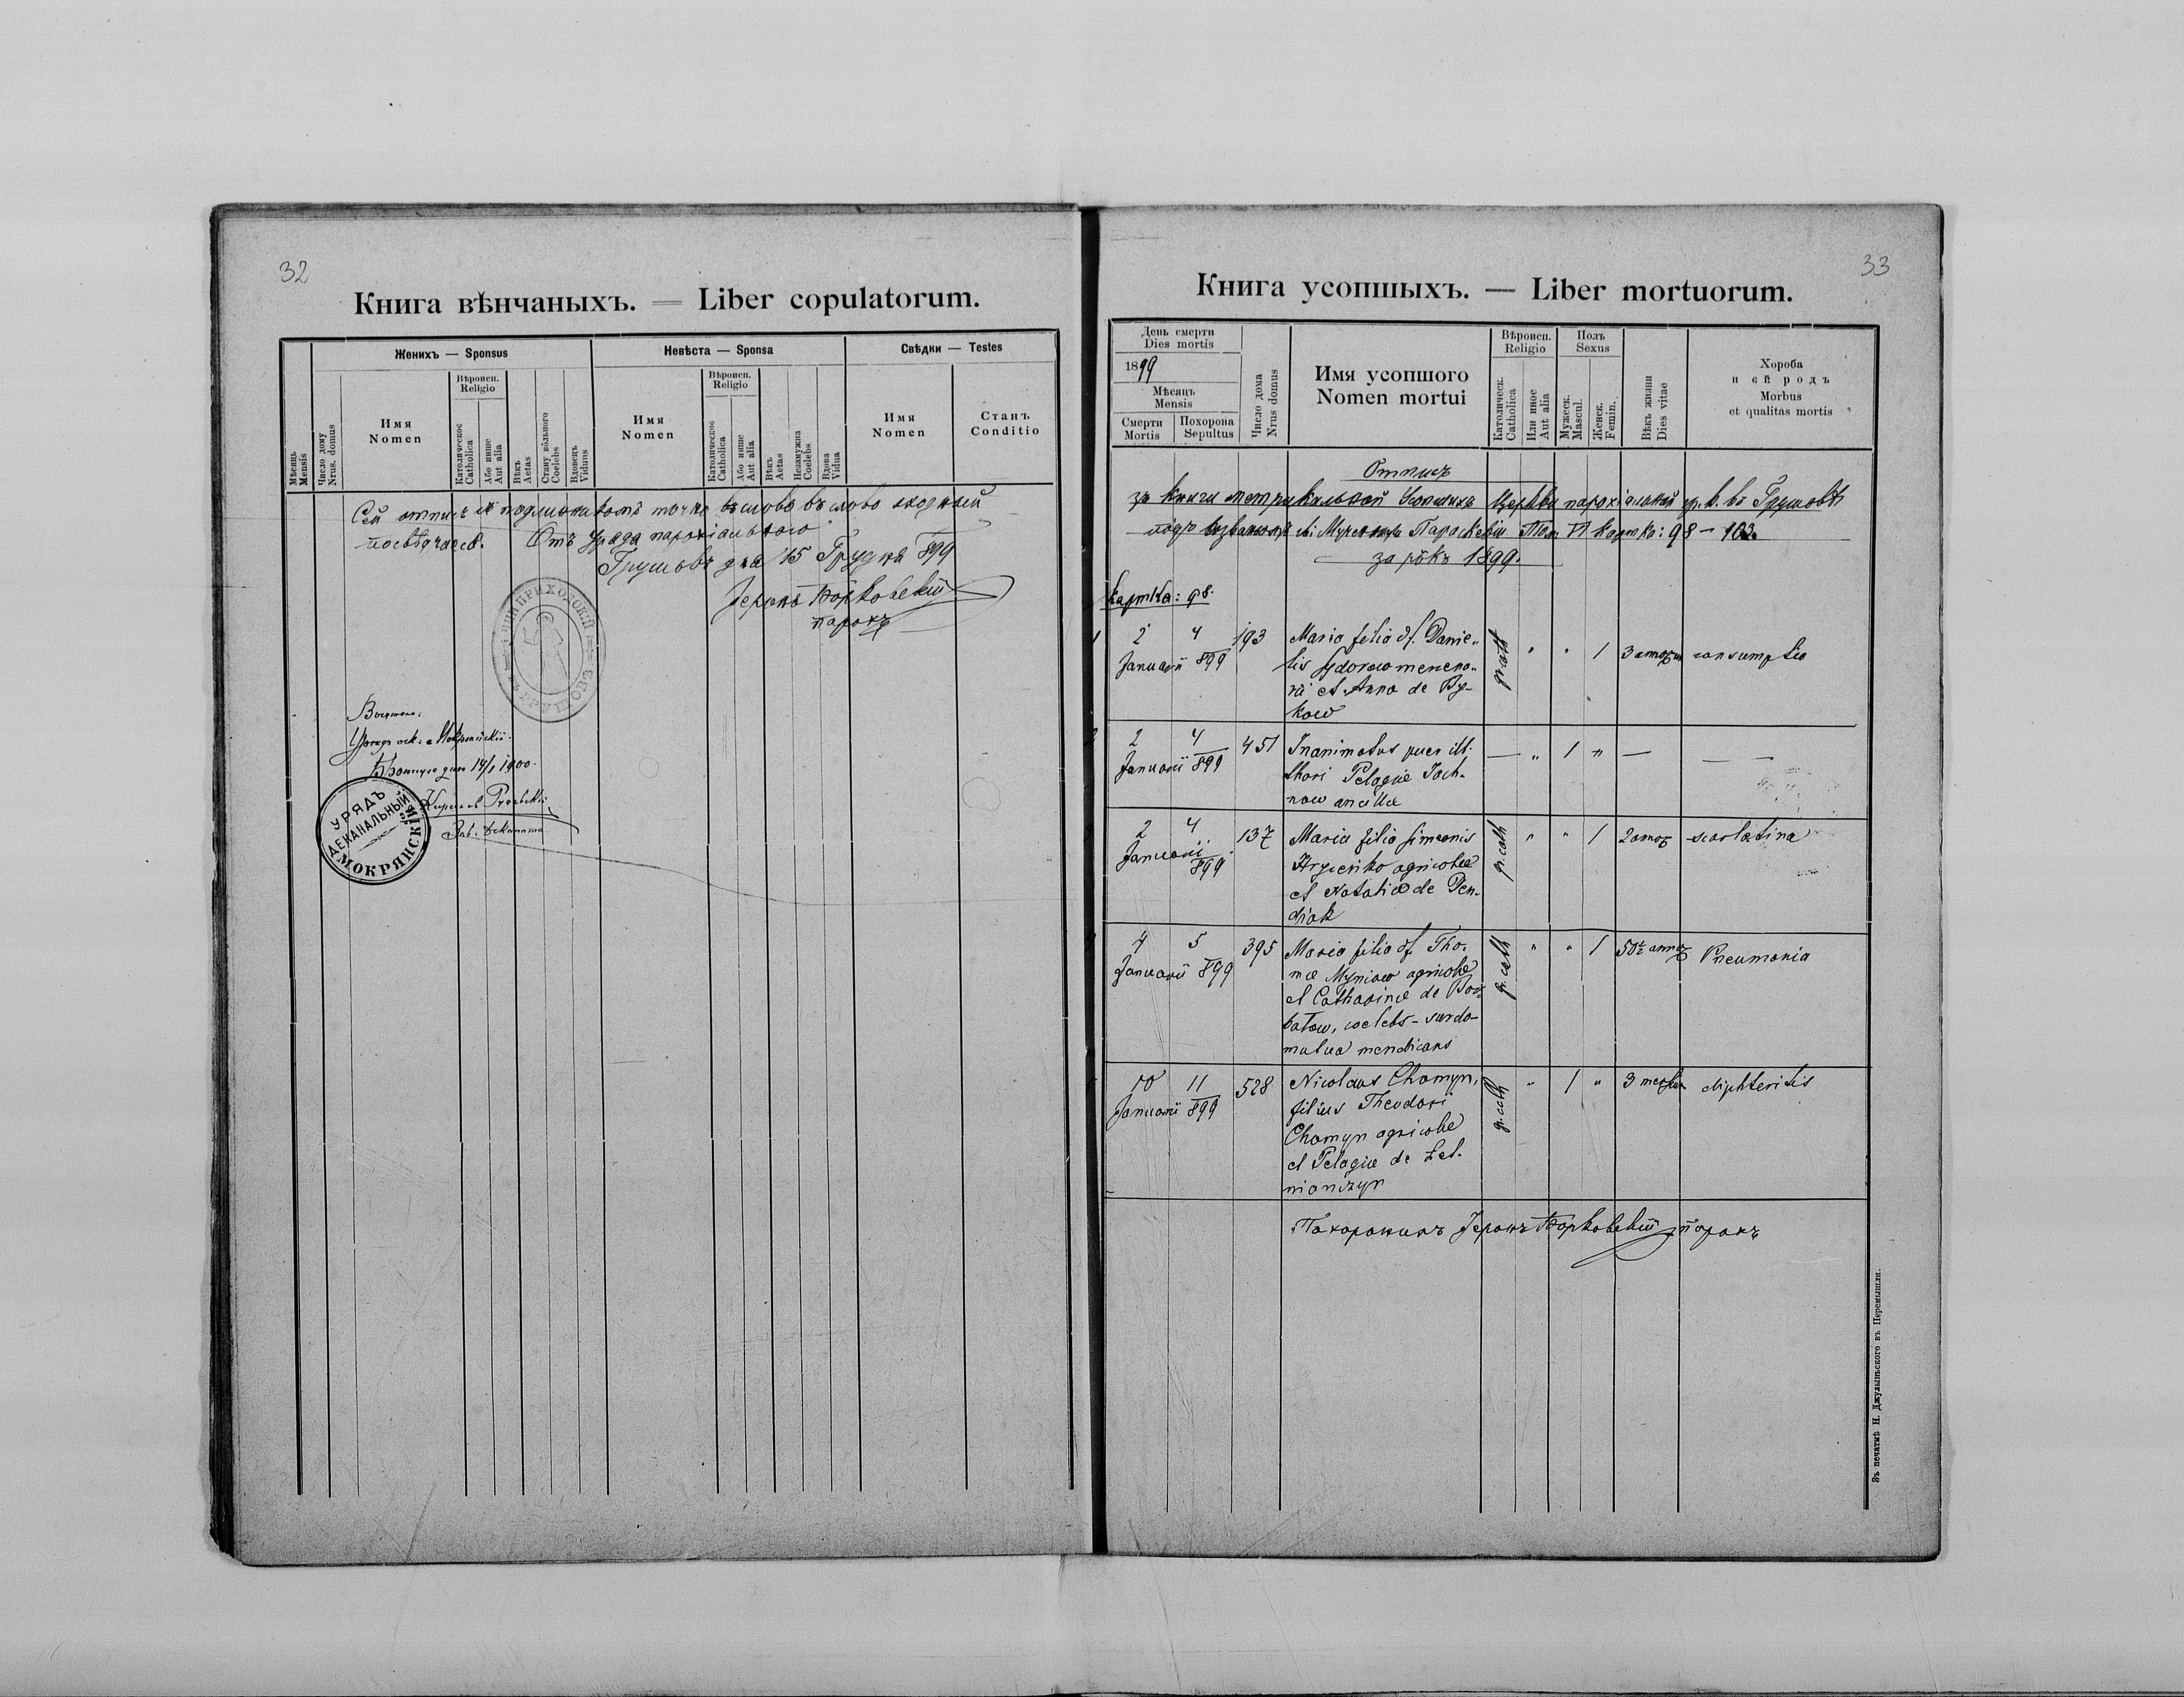 32
Книга вѣнчаныхъ. — Liber copulatorum.
Мѣсяць
Mensis
Число дому
Nrus. domus
Женихъ — Sponsus
Имя
Nomen
Вѣроисп.
Religio
Католическое
Catholica
Або инше
Aut alia
Вѣкъ
Aetas
Стану вольного
Coelebs
Вдовецъ
Viduus
Невѣста — Sponsa
Имя
Nomen
Вѣроисп.
Religio
Католическое
Catholica
Або инше
Aut alia
Вѣкъ
Aetas
Незамужна
Coelebs
Вдова
Vidua
Свѣдки — Testes
Имя
Nomen
Станъ
Conditio
Сей отписъ
слово въ слово сходный
посвѣдчаеся. Отъ Уряда парохіального
Грушовъ дня 15 Грудня 899
Іеронъ Борковскій
парохъ
Урядъ
дня 14/1 1900.
УРЯДЪ
ДЕКАНАЛЬНЫЙ
МОКРЯНСКІЙ
33
Книга усопшыхъ. — Liber mortuorum.
День смерти
Dies mortis
1899
Мѣсяцъ
Mensis
Смерти
Mortis
Похорона
Sepultus
Число дома
Nrus domus
Имя усопшого
Nomen mortui
Вѣроисп.
Religio
Католическ.
Catholica
Или иное
Aut alia
Полъ
Sexus
Мужеск.
Mascul.
Женск.
Femin.
Вѣкъ жизни
Dies vitae
Хороба
и єй родъ
Morbus
et qualitas mortis
Отписъ
зъ книги метрикальной Усопшихъ Церкви парохіальной гр. к. въ Грушовѣ
подъ взываніемъ св: Мученицы Параскевіи Том VI картка: 98 – 103.
за рôкъ 1899.
картка: 98.
1 2 4 193 Maria filia df. Danie-
Januarii 899 gr. cath " " 1 3 consumptio
et Anna de By-
kow
2 4 451 Inanimatus puer ill. — " 1 " — —
Januarii 899 thori Pelagiæ Jach-
now ancillæ
2 4 137 Maria filia Simeonis gr. cath " " 1 2 annor scarlatina
Januarii 899 Hrycienko agricolæ
et Nataliæ de Pen-
diak
4 5 395 Maria filia df. Tho- gr. cath " " 1 50½ annor Pneumonia
Januarii 899 mæ Myniow agricolæ
et Catharinæ de Bor-
batow, coelebs – surdo-
mutua mendicans
10 11 528 Nicolaus Chomyn, gr. cath " 1 " 3 diphteritis
Januarii 899 filius Theodori
Chomyn agricolæ
et Pelagiæ de Zel-
mianczyn
Похоронилъ Іеронъ Борковскій парохъ
Зъ печатнѣ Н. Джулыньского въ Перемышли.